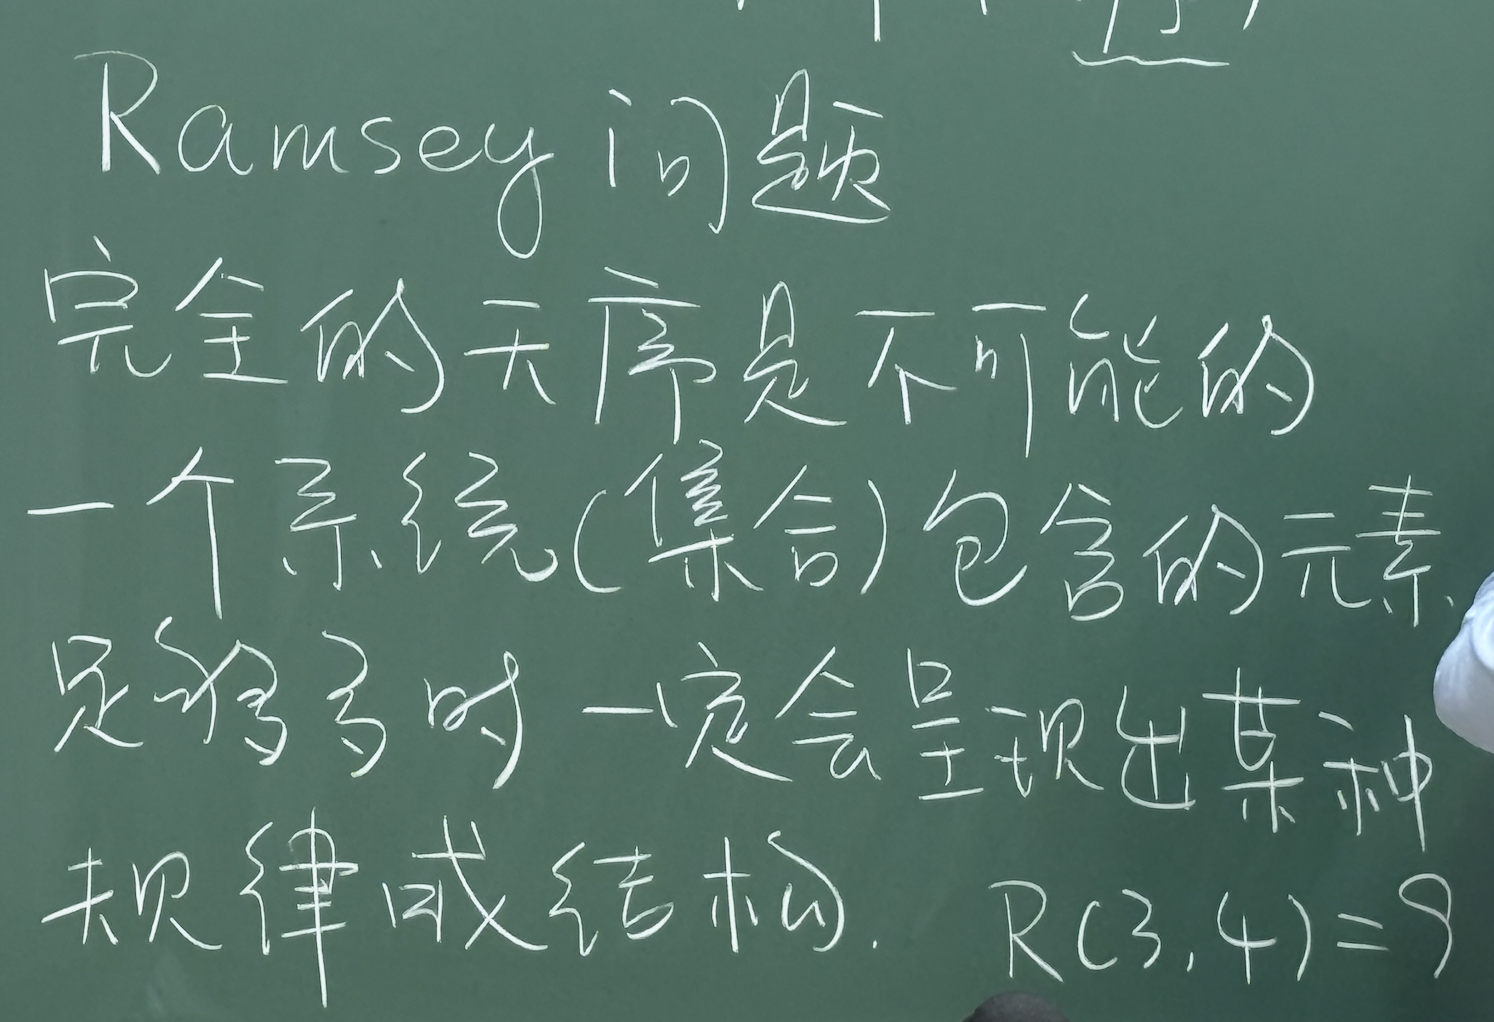 Ramsey 问题
完全的无序是不可能的
一个系统(集合)包含的元素
足够多时一定会呈现出某种
规律或结构.
R(3,4)=9